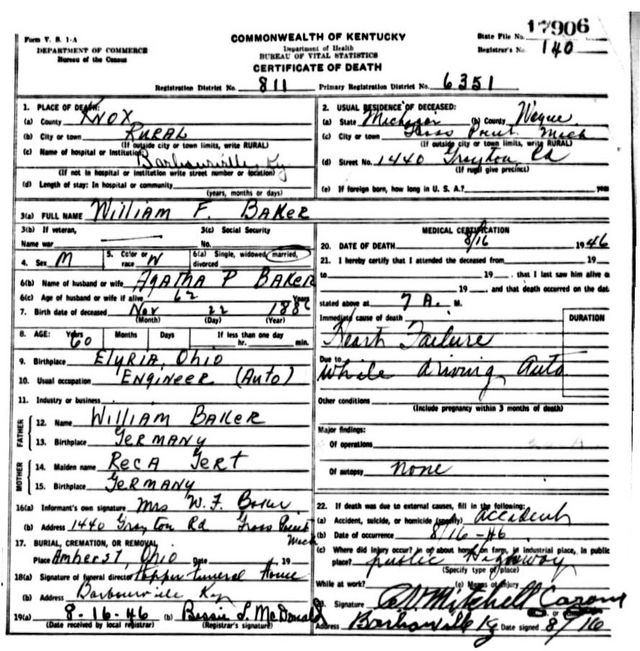 Form V. S. 1-A
DEPARTMENT OF COMMERCE
Bureau of the Census
COMMONWEALTH OF KENTUCKY
Department of Health
BUREAU OF VITAL STATISTICS
CERTIFICATE OF DEATH
State File No. 17906
Registrar's No. 140
Registration District No. 811 Primary Registration District No. 6351
1. PLACE OF DEATH:
(a) County KNOX
(b) City or town RURAL
(If outside city or town limits, write RURAL)
(c) Name of hospital or institution Barbourville, Ky
(If not in hospital or institution write street number or location)
(d) Length of stay: In hospital or community
(years, months or days)
2. USUAL RESIDENCE OF DECEASED:
(a) State Michigan (b) County Wayne
(c) City or town Gross Point Mich
(If outside city or town limits, write RURAL)
(d) Street No. 1440 Grayton Rd
(If rural give precinct)
(e) If foreign born, how long in U. S. A.? years
3(a) FULL NAME William F. BAKER
3(b) If veteran,
Name war
3(c) Social Security
No.
4. Sex M
5. Color or race W
6(a) Single, widowed, married, divorced
6(b) Name of husband or wife AGATHA P BAKER
6(c) Age of husband or wife if alive 62 Years
7. Birth date of deceased Nov 22 1886
(Month) (Day) (Year)
8. AGE: Years Months Days If less than one day
60 hr. min.
9. Birthplace ELYRIA, Ohio
10. Usual occupation ENGINEER (AUTO)
11. Industry or business
FATHER
12. Name WILLIAM BAKER
13. Birthplace GERMANY
MOTHER
14. Maiden name RECA GERT
15. Birthplace GERMANY
16(a) Informant's own signature Mrs W. F. Baker
(b) Address 1440 Grayton Rd Gross Point
Mich
17. BURIAL, CREMATION, OR REMOVAL
Place Amherst, Ohio Date 19
18(a) Signature of funeral director Hopper Funeral House
(b) Address Barbourville Ky
19(a) 8-16-46 (b) Bessie S. McDonald
(Date received by local registrar) (Registrar's signature)
MEDICAL CERTIFICATION
20. DATE OF DEATH 8/16 1946
21. I hereby certify that I attended the deceased from 19
to 19 that I last saw him alive o
19 and that death occurred on the dat
stated above at 7 A. M.
Immediate cause of death DURATION
Heart Failure
Due to
While driving Auto
Other conditions
(Include pregnancy within 3 months of death)
Major findings:
Of operations
Of autopsy None
22. If death was due to external causes, fill in the following:
(a) Accident, suicide, or homicide (specify) Accident
(b) Date of occurrence 8/16-46
(c) Where did injury occur? in or about home, on farm, in industrial place, in public
place? public Highway
(Specify type of place)
While at work? (e) Means of injury
Signature C D Mitchell Coroner
Address Barbourville Ky Date signed 8/16